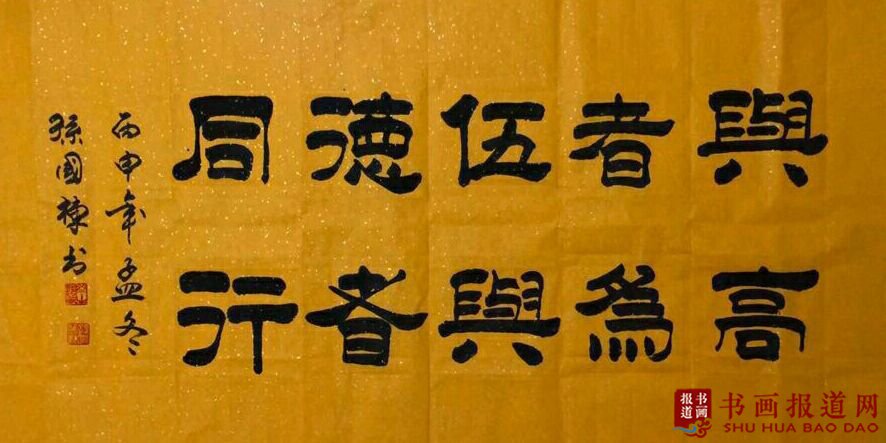 與高
者為
伍與
德者
同行
丙申年孟冬
孫國棟书
报道
书画
书画报道网
SHU HUA BAO DAO